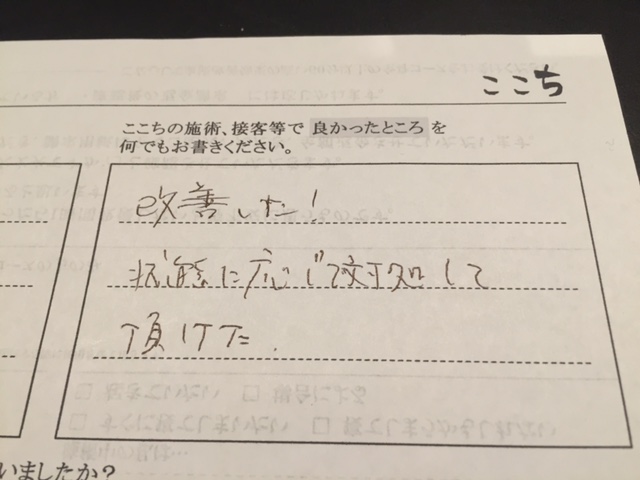 ここち
ここちの施術、接客等で 良かったところ を
何でもお書きください。
改善した!
状態に応じて対処して
頂けた.
いましたか?